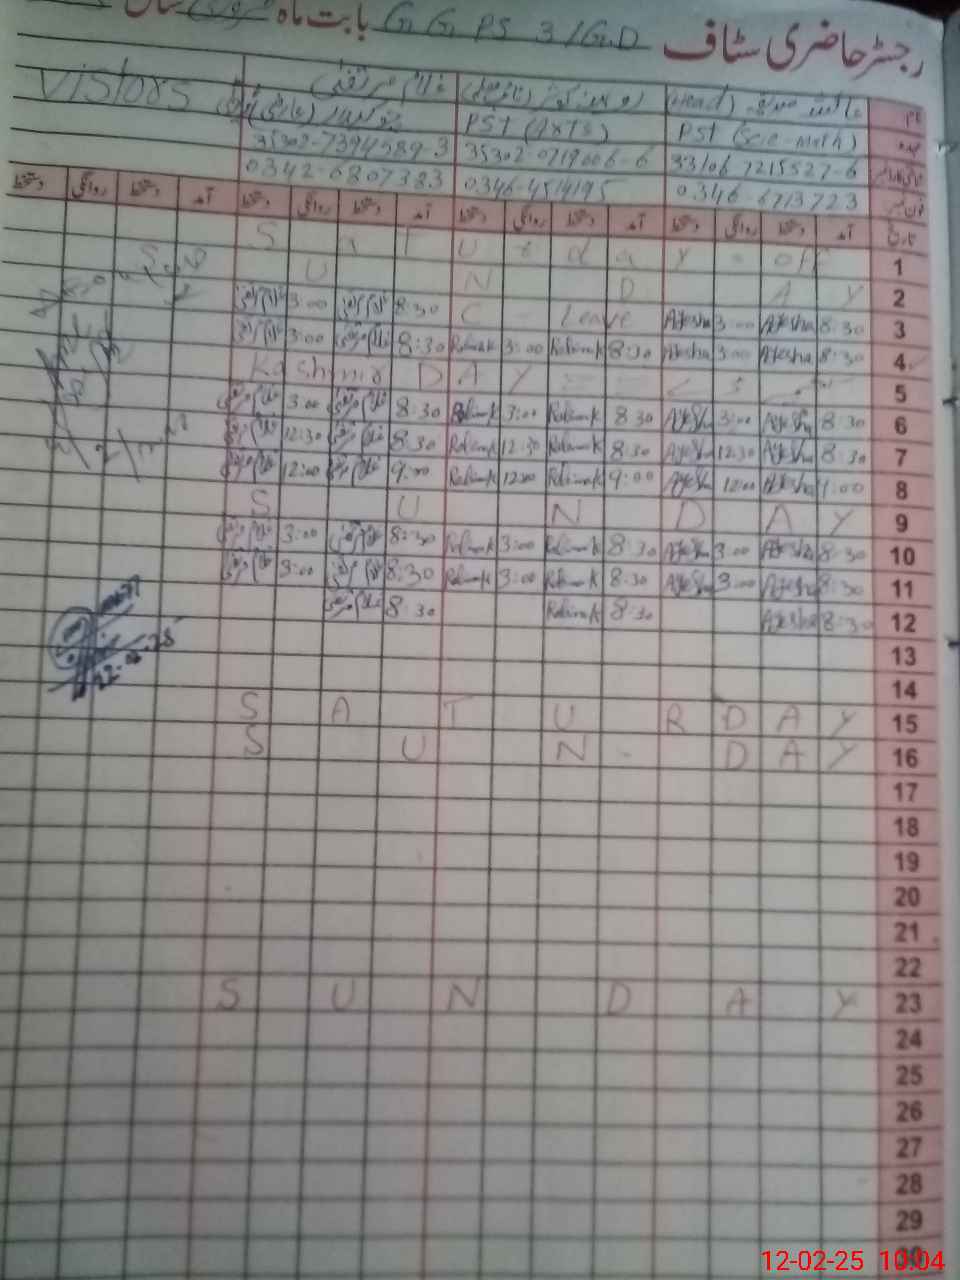 رجسٹر حاضری سٹاف G. G. PS 3/G.D بابت ماہ فروری سال
نام عائشہ صدیقہ (Head) روبینہ کوثر غلام مرتضیٰ Vistors
عہدہ PST (Sci-math) PST (Arts) چوکیدار
33106-7215527-6 35302-0719006-6 35302-7394589-3
0346-6713723 0346-4514195 0342-6807383
تاریخ آمد دستخط روانگی دستخط آمد دستخط روانگی دستخط آمد دستخط روانگی دستخط آمد دستخط روانگی دستخط
1 Saturday - off
2 S U N D A Y
3 8:30 Ayesha 3:00 Ayesha C - Leave 8:30 غلام مرتضیٰ 3:00 غلام مرتضیٰ
4 8:30 Ayesha 3:00 Ayesha 8:30 Rubina K 3:00 Rubina K 8:30 غلام مرتضیٰ 3:00 غلام مرتضیٰ
5 Kashmir DAY
6 8:30 Ayesha 3:00 Ayesha 8:30 Rubina K 3:00 Rubina K 8:30 غلام مرتضیٰ 3:00 غلام مرتضیٰ
7 8:30 Ayesha 12:30 Ayesha 8:30 Rubina K 12:30 Rubina K 8:30 غلام مرتضیٰ 12:30 غلام مرتضیٰ
8 9:00 Ayesha 12:00 Ayesha 9:00 Rubina K 12:00 Rubina K 9:00 غلام مرتضیٰ 12:00 غلام مرتضیٰ
9 S U N D A Y
10 8:30 Ayesha 3:00 Ayesha 8:30 Rubina K 3:00 Rubina K 8:30 غلام مرتضیٰ 3:00 غلام مرتضیٰ
11 8:30 Ayesha 3:00 Ayesha 8:30 Rubina K 3:00 Rubina K 8:30 غلام مرتضیٰ 3:00 غلام مرتضیٰ
12 8:30 Ayesha 8:30 Rubina K 8:30 غلام مرتضیٰ
13
14
15 S A T U R D A Y
16 S U N - D A Y
17
18
19
20
21
22
23 S U N D A Y
24
25
26
27
28
29
30
12-02-25 10:04